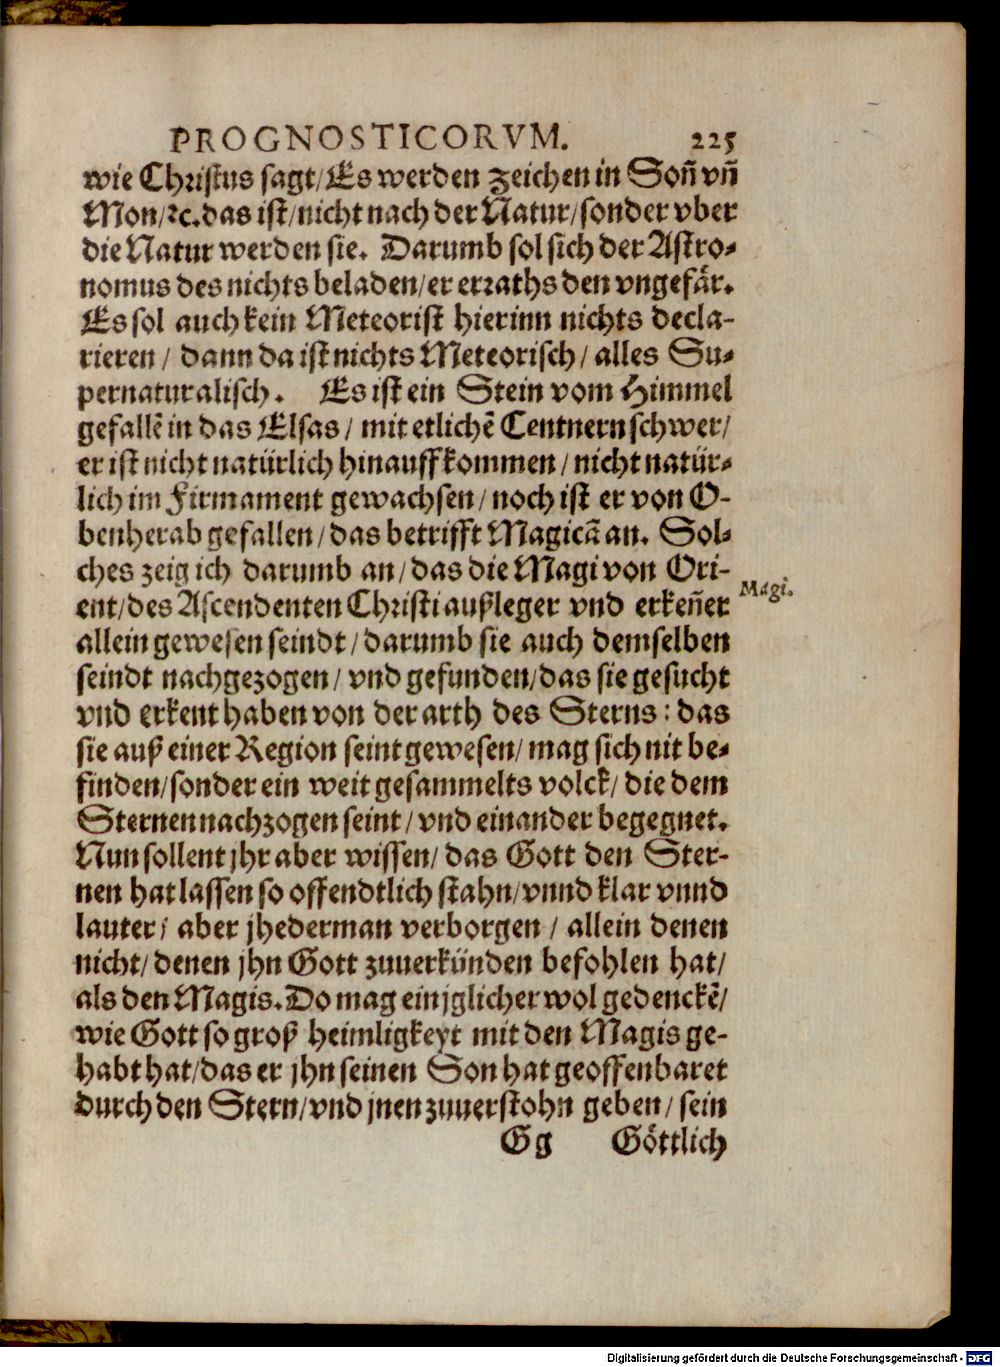 PROGNOSTICORVM. 225
wie Christus sagt/Es werden zeichen in Soñ vñ
Mon/ꝛc.das ist/nicht nach der Natur/sonder vber
die Natur werden sie. Darumb sol sich der Astro-
nomus des nichts beladen/er erraths den vngefär.
Es sol auch kein Meteorist hierinn nichts decla-
rieren/ dann da ist nichts Meteorisch/ alles Su-
pernaturalisch. Es ist ein Stein vom Himmel
gefallẽ in das Elsas/ mit etlichẽ Centnern schwer/
er ist nicht natürlich hinauff kommen/nicht natür-
lich im Firmament gewachsen/noch ist er von O-
benherab gefallen/das betrifft Magicã an. Sol-
ches zeig ich darumb an/das die Magi von Ori-
Magi.
ent/des Ascendenten Christi außleger vnd erkeñer
allein gewesen seindt/darumb sie auch demselben
seindt nachgezogen/vnd gefunden/das sie gesucht
vnd erkent haben von der arth des Sterns: das
sie auß einer Region seint gewesen/mag sich nit be-
finden/sonder ein weit gesammelts volck/ die dem
Sternen nachzogen seint/vnd einander begegnet.
Nun sollent jhr aber wissen/das Gott den Ster-
nen hat lassen so offendtlich stahn/vnnd klar vnnd
lauter/ aber jhederman verborgen/ allein denen
nicht/denen jhn Gott zuuerkünden befohlen hat/
als den Magis.Do mag ein jglicher wol gedenckẽ/
wie Gott so groß heimligkeyt mit den Magis ge-
habt hat/das er jhn seinen Son hat geoffenbaret
durch den Stern/vnd jnen zuuerstohn geben/sein
Gg Göttlich
Digitalisierung gefördert durch die Deutsche Forschungsgemeinschaft - DFG